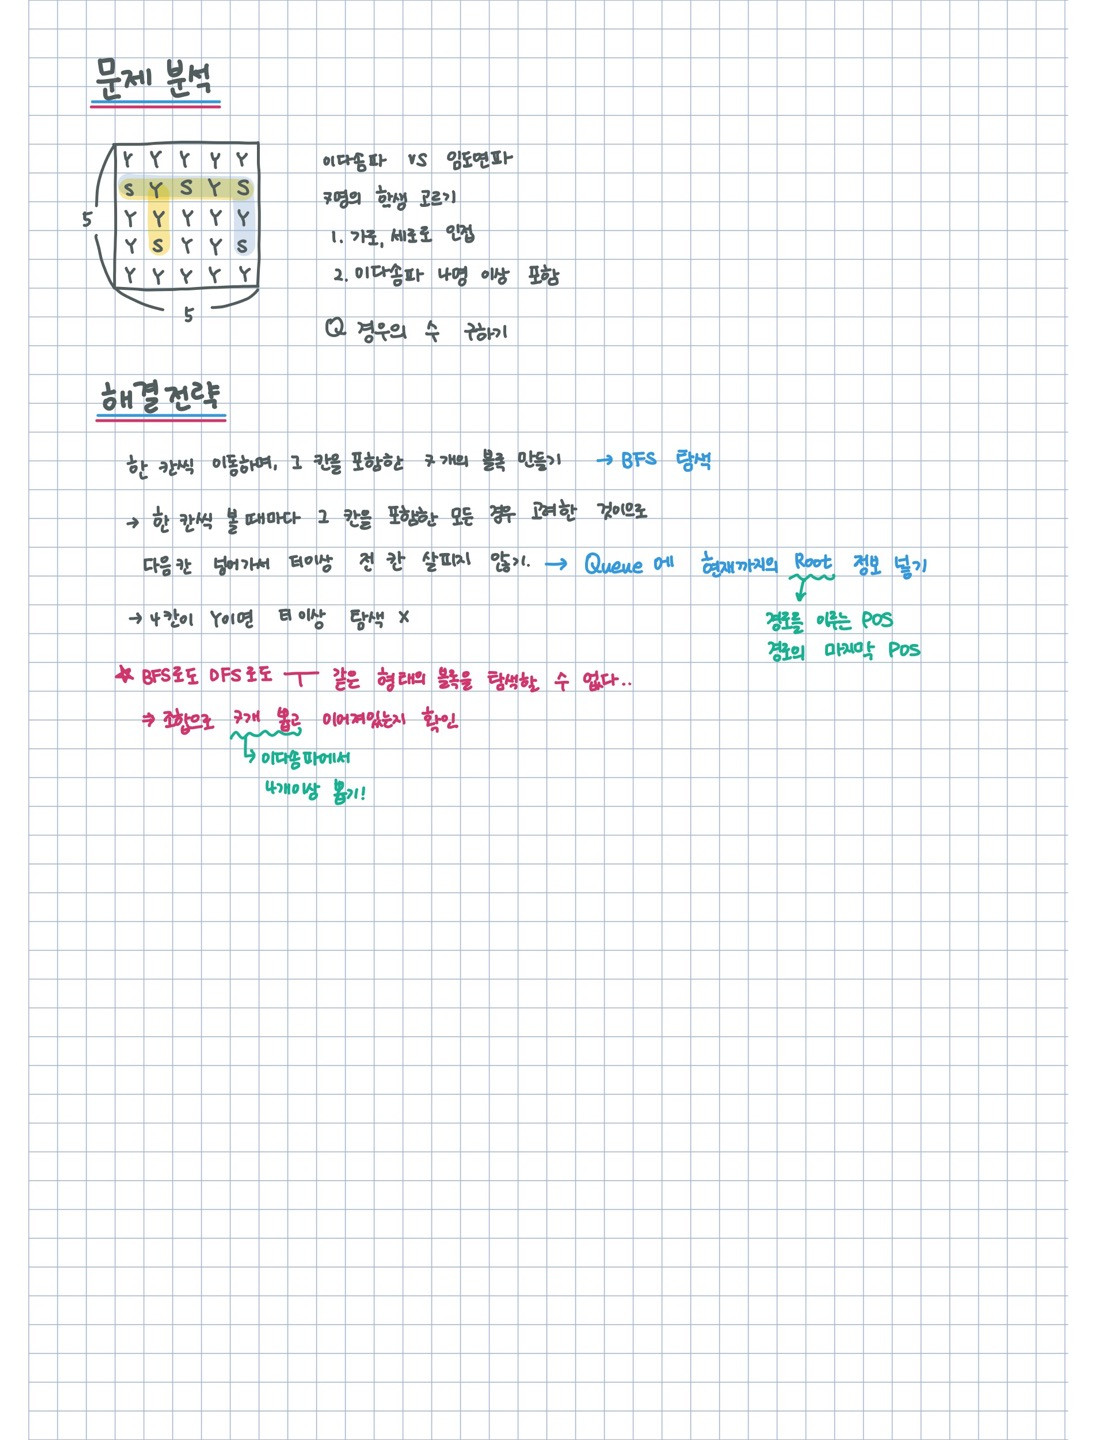 문제 분석
Y Y Y Y Y
S Y S Y S
Y Y Y Y Y
Y S Y Y S
Y Y Y Y Y
5
5
이다솜파 VS 임도연파
7명의 학생 고르기
1. 가로, 세로로 인접
2. 이다솜파 4명 이상 포함
Q 경우의 수 구하기
해결전략
한 칸씩 이동하며, 그 칸을 포함한 7개의 블록 만들기 → BFS 탐색
→ 한 칸씩 볼 때마다 그 칸을 포함한 모든 경우 고려한 것이므로
다음칸 넘어가서 더이상 전 칸 살피지 않기. → Queue에 현재까지의 Root 정보 넣기
경로를 이루는 POS
경로의 마지막 POS
→ 4칸이 Y이면 더 이상 탐색 X
☆ BFS로도 DFS로도 ㅜ 같은 형태의 블록을 탐색할 수 없다..
⇒ 조합으로 7개 뽑고 이어져있는지 확인
↳ 이다솜파에서
4개이상 뽑기!